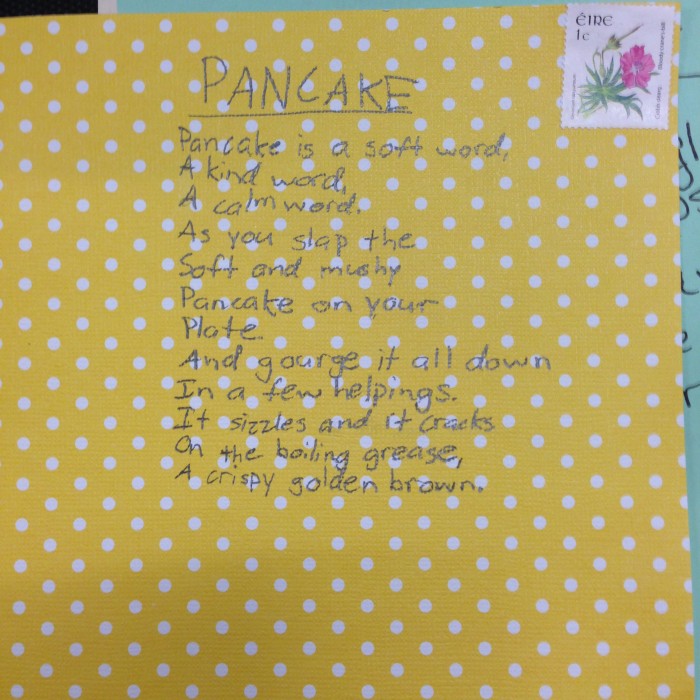 ÉIRE
1c
PANCAKE
Pancake is a soft word,
A kind word,
A calm word.
As you slap the
Soft and mushy
Pancake on your
Plate
And gourge it all down
In a few helpings.
It sizzles and it cracks
On the boiling grease,
A crispy golden brown.